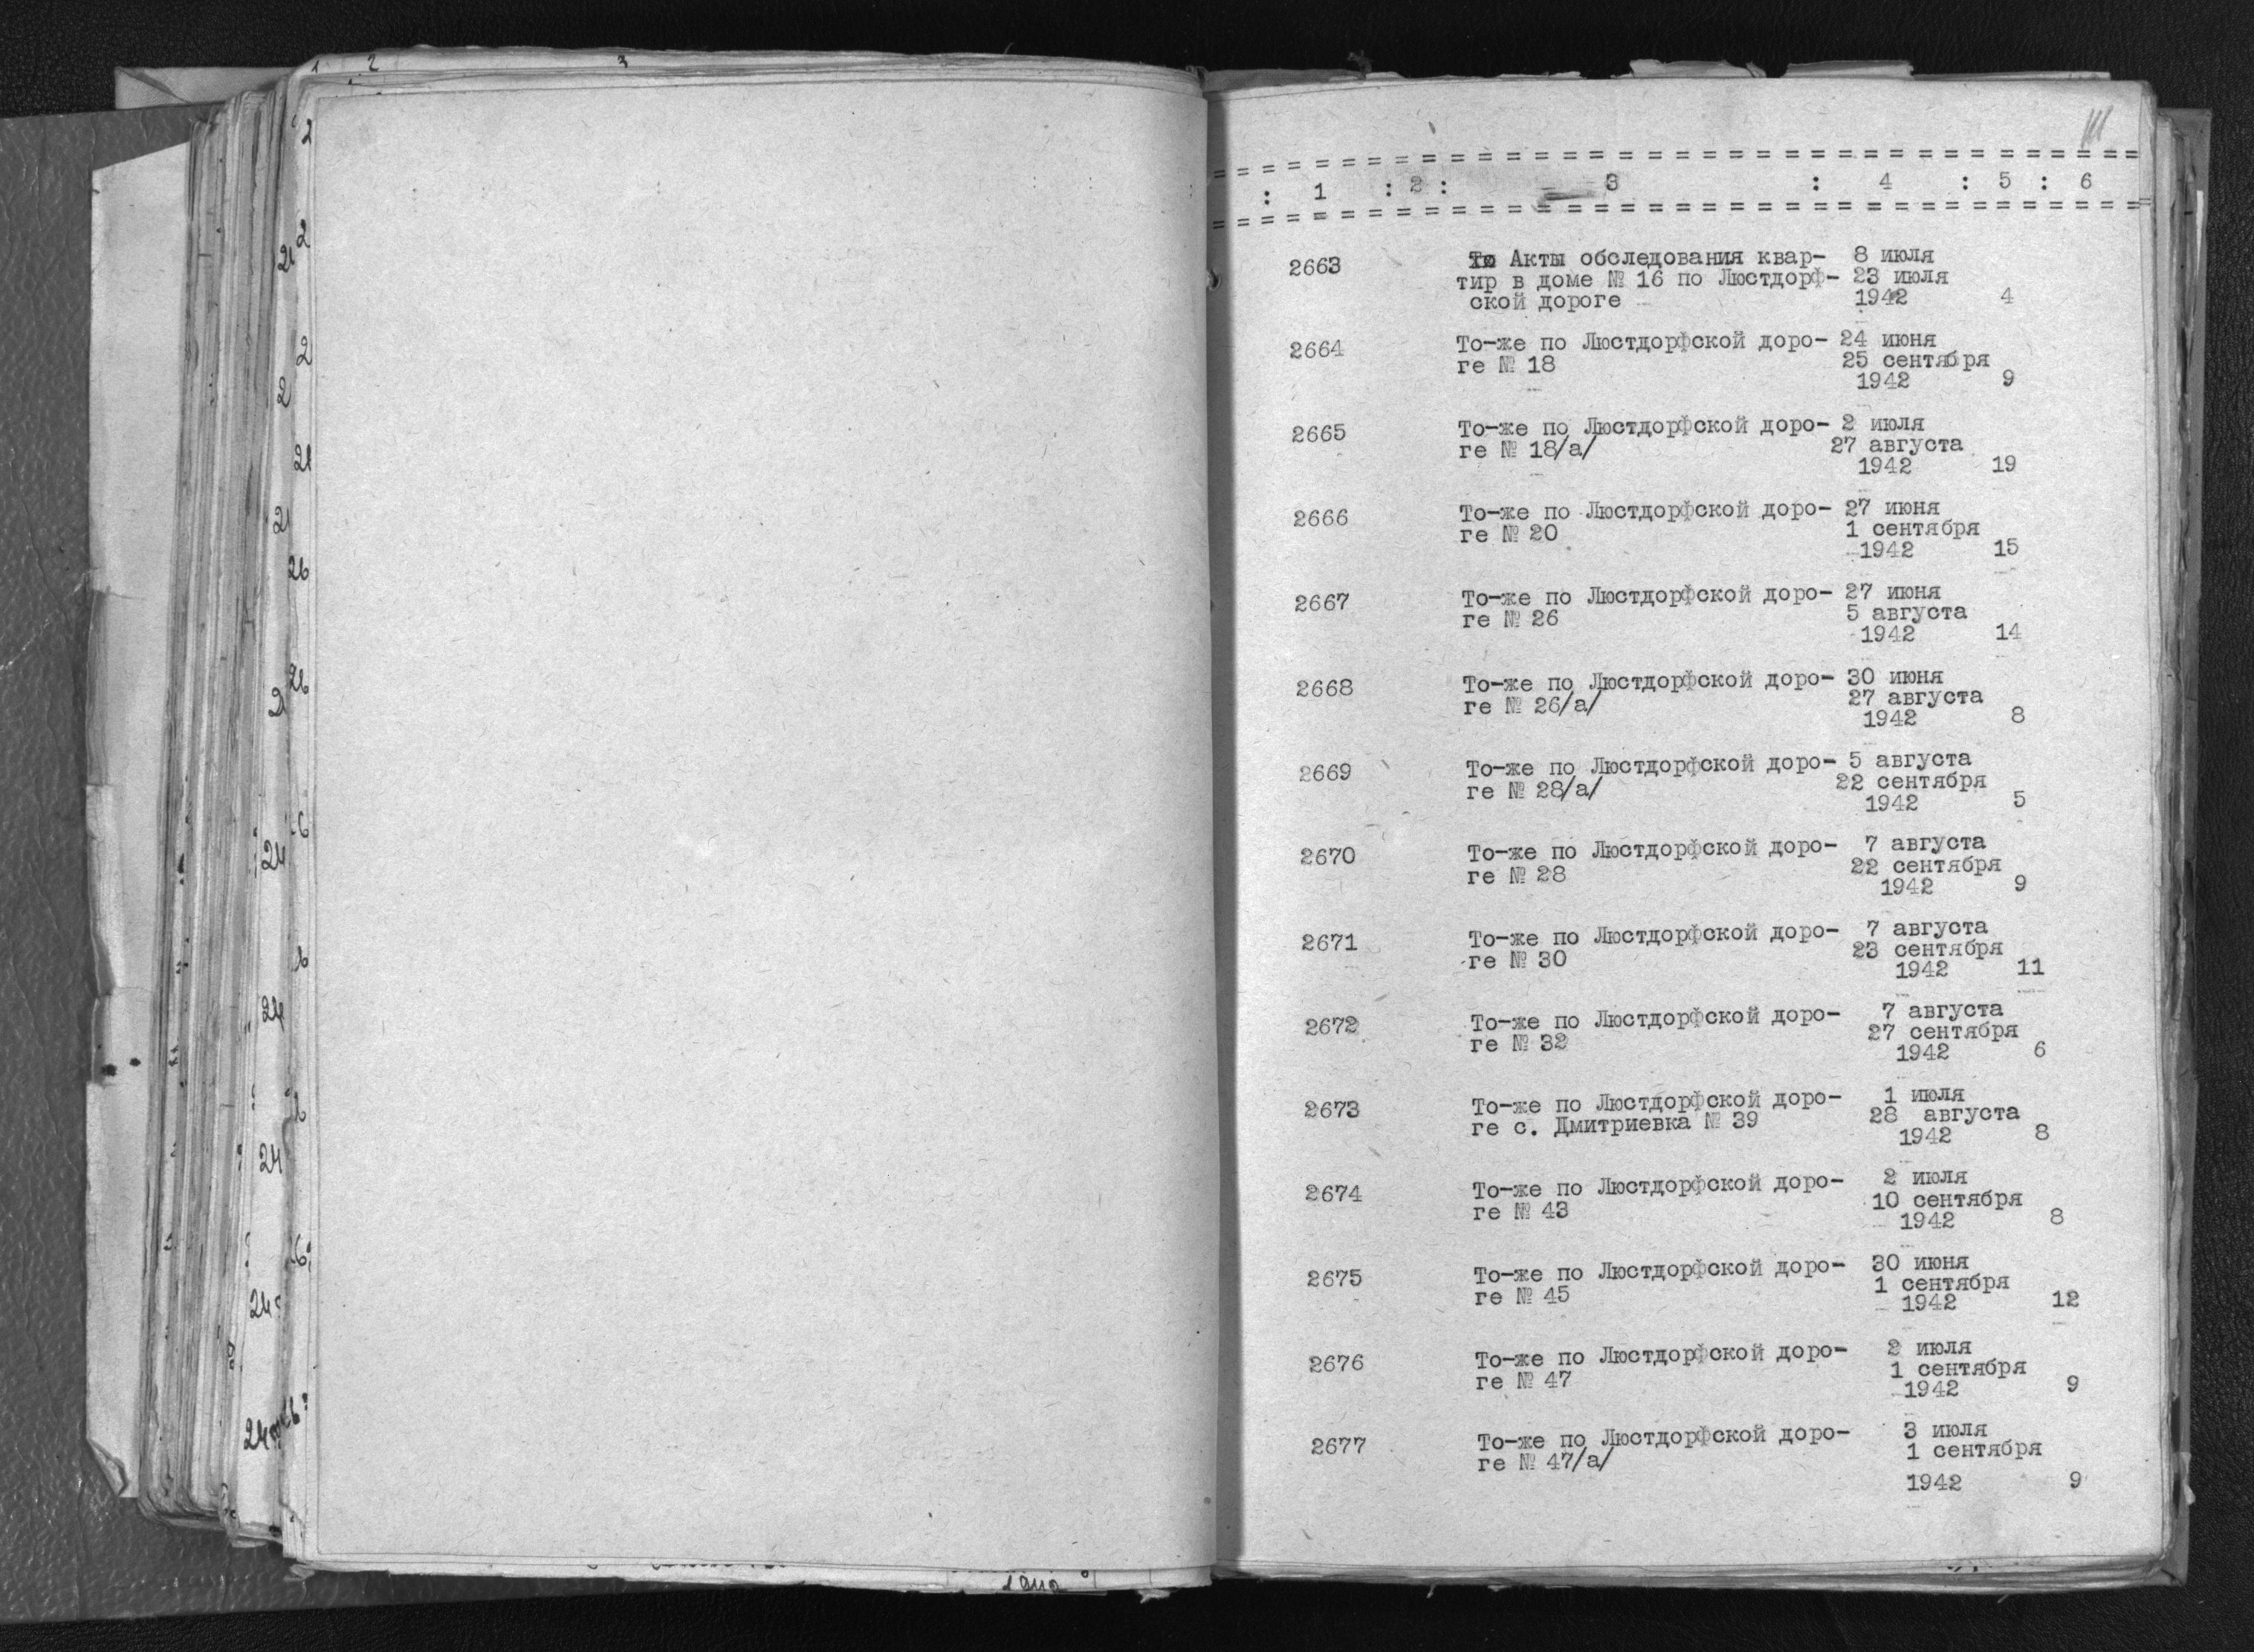 111
: 1 : 2 : 3 : 4 : 5 : 6
2663 Акты обследования квар- 8 июля
тир в доме № 16 по Люстдорф- 23 июля
ской дороге 1942 4
2664 То-же по Люстдорфской доро- 24 июня
ге № 18 25 сентября
1942 9
2665 То-же по Люстдорфской доро- 2 июля
ге № 18/а/ 27 августа
1942 19
2666 То-же по Люстдорфской доро- 27 июня
ге № 20 1 сентября
1942 15
2667 То-же по Люстдорфской доро- 27 июня
ге № 26 5 августа
1942 14
2668 То-же по Люстдорфской доро- 30 июня
ге № 26/а/ 27 августа
1942 8
2669 То-же по Люстдорфской доро- 5 августа
ге № 28/а/ 22 сентября
1942 5
2670 То-же по Люстдорфской доро- 7 августа
ге № 28 22 сентября
1942 9
2671 То-же по Люстдорфской доро- 7 августа
ге № 30 23 сентября
1942 11
2672 То-же по Люстдорфской доро- 7 августа
ге № 32 27 сентября
1942 6
2673 То-же по Люстдорфской доро- 1 июля
ге с. Дмитриевка № 39 28 августа
1942 8
2674 То-же по Люстдорфской доро- 2 июля
ге № 43 10 сентября
1942 8
2675 То-же по Люстдорфской доро- 30 июня
ге № 45 1 сентября
1942 12
2676 То-же по Люстдорфской доро- 2 июля
ге № 47 1 сентября
1942 9
2677 То-же по Люстдорфской доро- 3 июля
ге № 47/а/ 1 сентября
1942 9